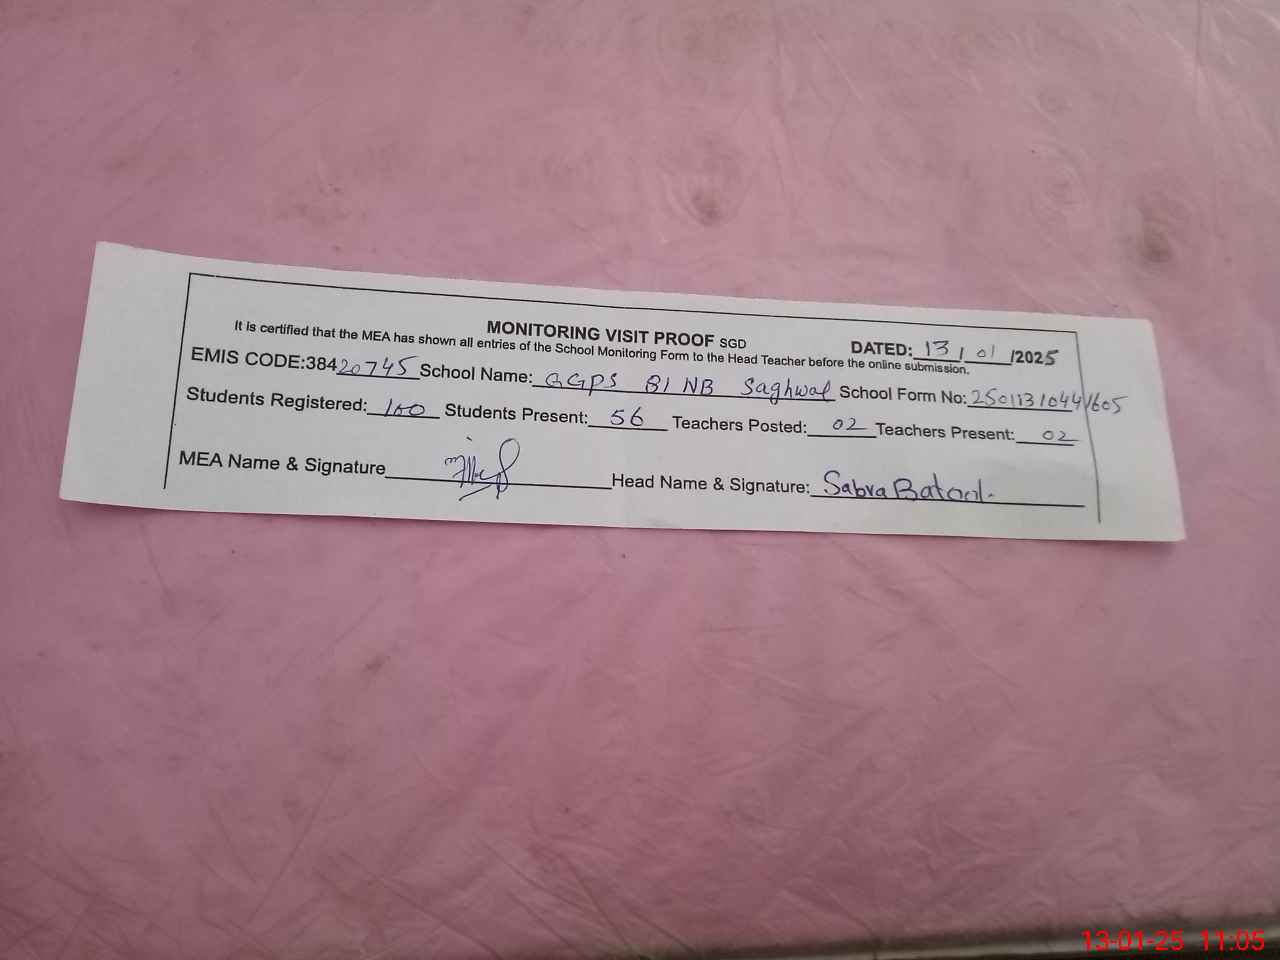 MONITORING VISIT PROOF SGD DATED: 13/01/2025
It is certified that the MEA has shown all entries of the School Monitoring Form to the Head Teacher before the online submission.
EMIS CODE:38420745 School Name: GGPS 81 NB Saghwal School Form No: 25011310441605
Students Registered: 100 Students Present: 56 Teachers Posted: 02 Teachers Present: 02
MEA Name & Signature Head Name & Signature: Sabra Batool.
13-01-25 11:05